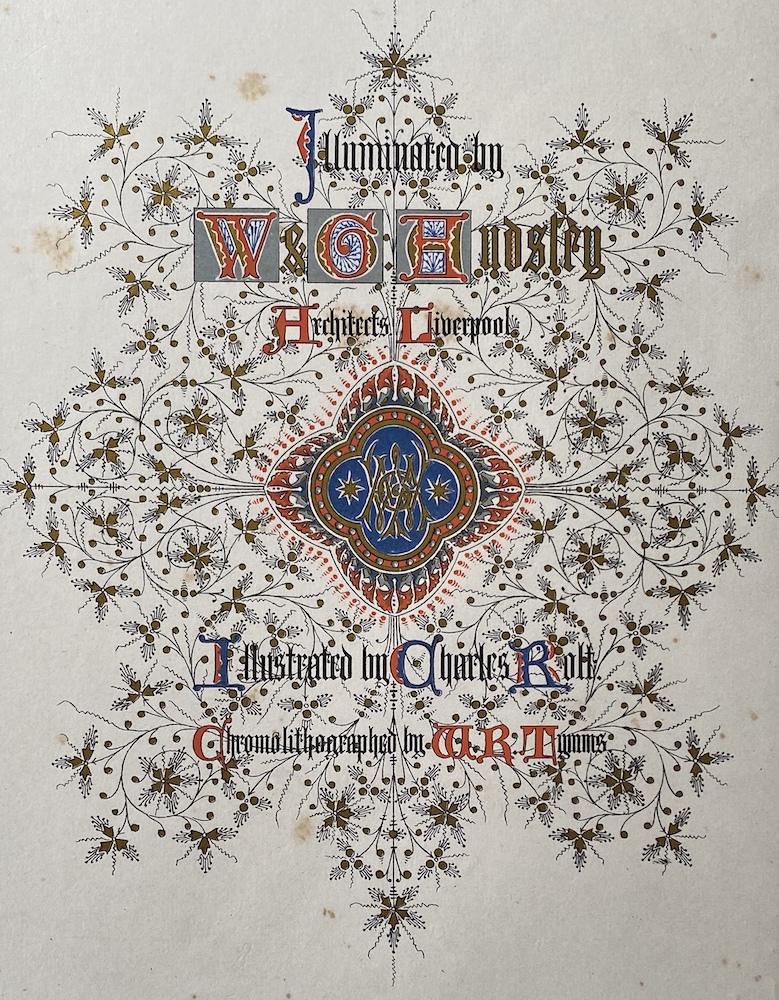 Illuminated by
W & G. Audsley
Architects Liverpool
Illustrated by Charles Rolt.
Chromolithographed by W. R. Tymms